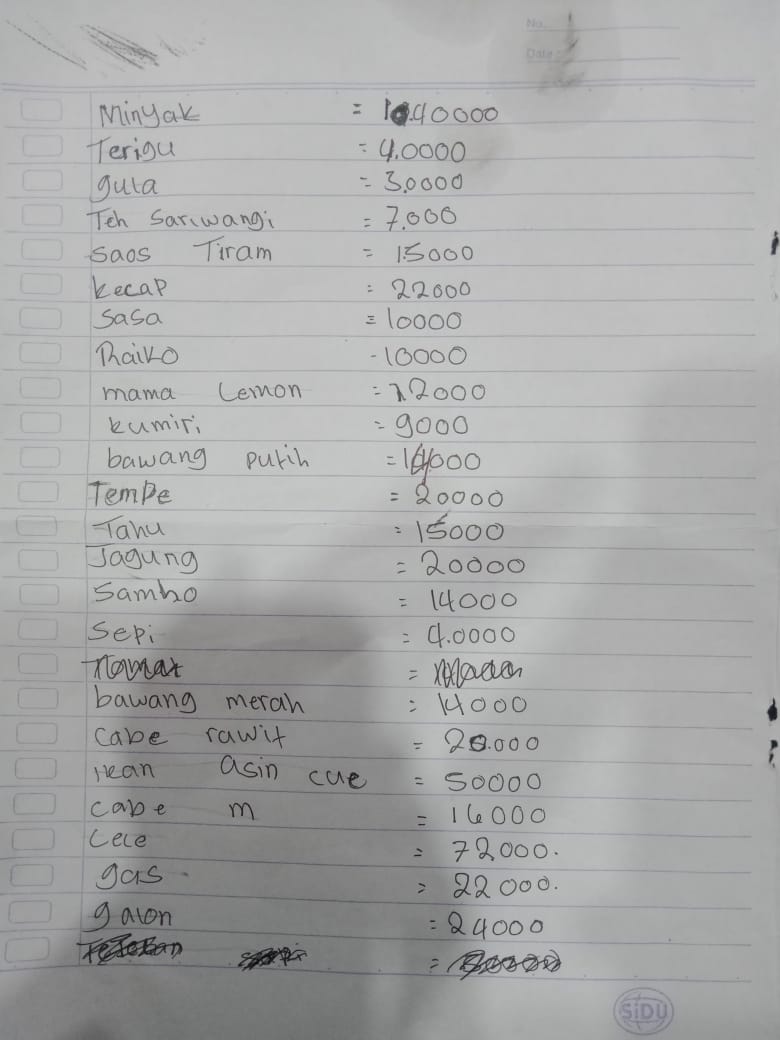 No.
Date
Minyak = 1040000
Terigu = 4.0000
gula = 3.0000
Teh Sariwangi = 7.000
Saos Tiram = 15000
kecap = 22000
Sasa = 10000
Raiko -10000
mama Lemon = 12000
kumiri = 9000
bawang putih = 14000
Tempe = 20000
Tahu = 15000
Jagung = 20000
Sambo = 14000
Sepi = 4.0000
bawang merah = 14000
Cabe rawit = 20.000
ikan asin cue = 50000
cabe m = 16000
Lele = 72000.
gas = 22000.
galon = 24000
SiDU